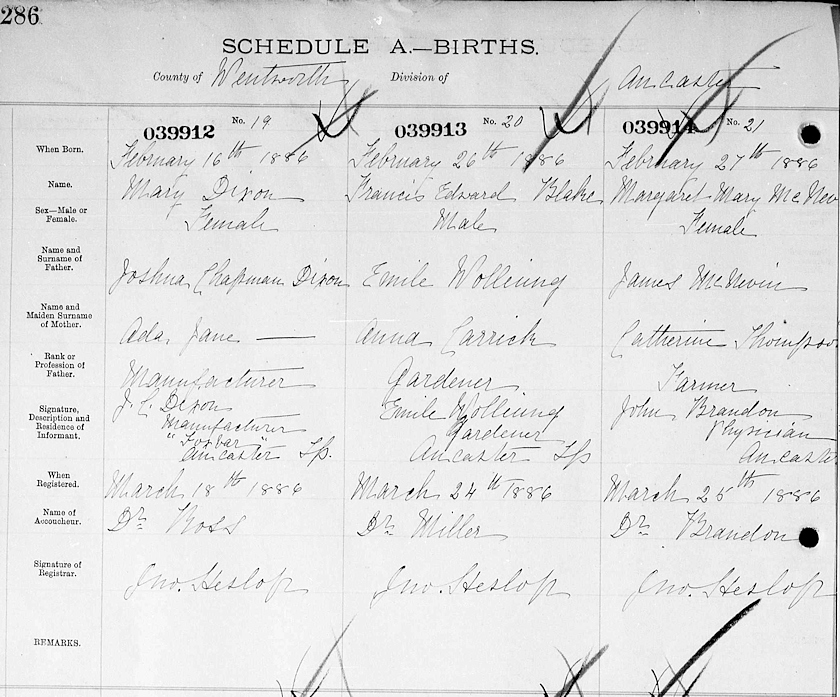 286
SCHEDULE A.—BIRTHS.
County of Wentworth Division of Ancaster
No. 19 No. 20 No. 21
039912 039913 039914
When Born. February 16th 1886 February 26th 1886 February 27th 1886
Name. Mary Dixon Francis Edward Blake Margaret Mary McNev
Sex—Male or Female. Female Male Female
Name and Surname of Father. Joshua Chapman Dixon Emile Wolliung James McNevin
Name and Maiden Surname of Mother. Ada Jane — Anna Carrick Catherine Thompso
Rank or Profession of Father. Manufacturer Gardener Farmer
Signature, Description and Residence of Informant. J. C. Dixon Emile Wolliung John Brandon
Manufacturer Gardener Physician
Ancaster Tp. Ancaster Tp Ancaster
When Registered. March 18th 1886 March 24th 1886 March 25th 1886
Name of Accoucheur. Dr. Ross Dr. Miller Dr. Brandon
Signature of Registrar. Jno. Heslop Jno. Heslop Jno. Heslop
REMARKS.